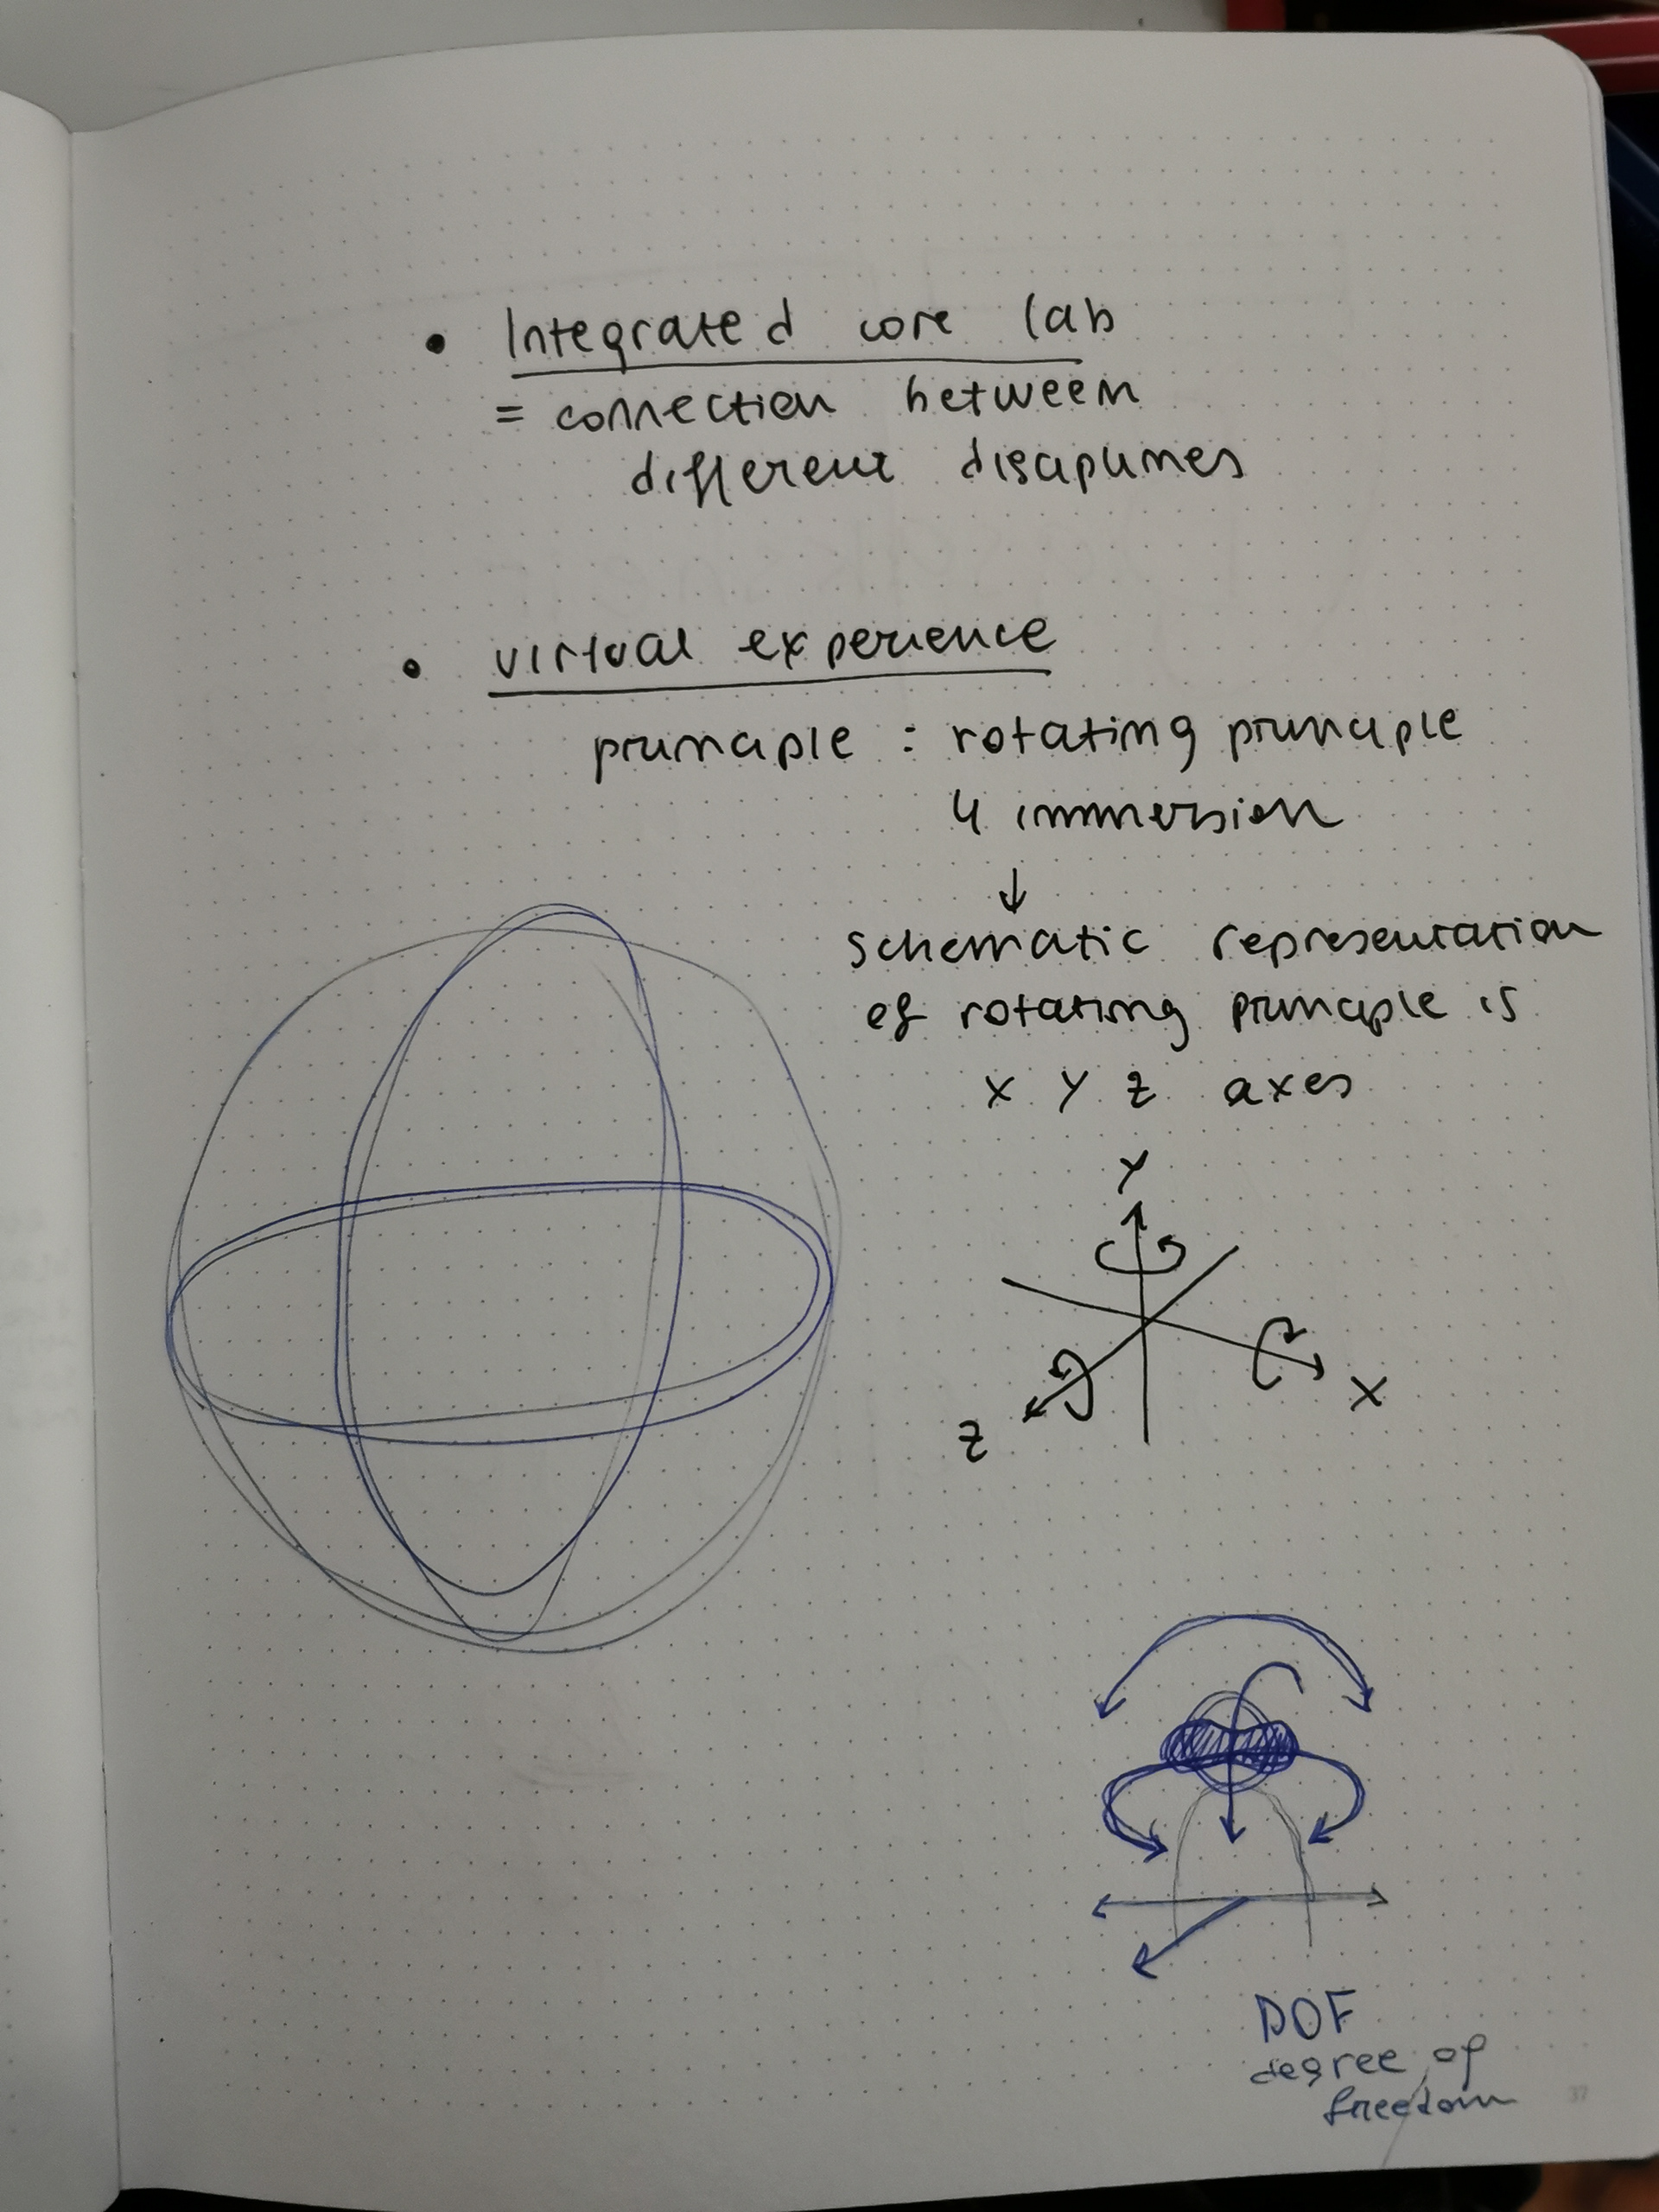 • Integrated core lab
= connection between
different disciplines
• virtual experience
principle : rotating principle
4 immersion
↓
schematic representation
of rotating principle is
x y z axes
Y
X
Z
DOF
degree of
freedom
37